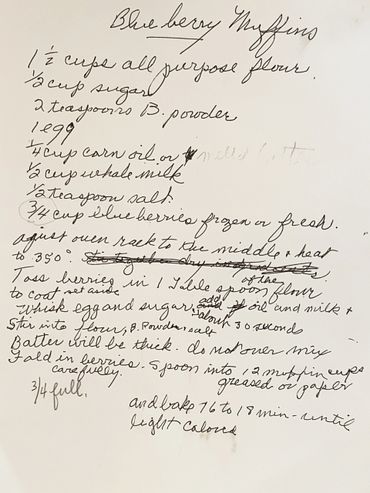 Blueberry Muffins
1 1/2 cups all purpose flour.
1/2 cup sugar
2 teaspoons B. powder
1 egg
1/4 cup corn oil or melted butter
1/2 cup whale milk
1/2 teaspoon salt
3/4 cup blueberries frozen or fresh.
ajust oven rack to the middle + heat
to 350°.
Toss berries in 1 Table spoon of the flour
to coat set aside
Whisk egg and sugar add oil and milk +
about 30 seconds
Stir into flour, B. Powder, salt
Batter will be thick. do not over mix
Fold in berries. Spoon into 12 muffin cups
carefully. greased or paper
3/4 full.
and bake 16 to 18 min - until
light